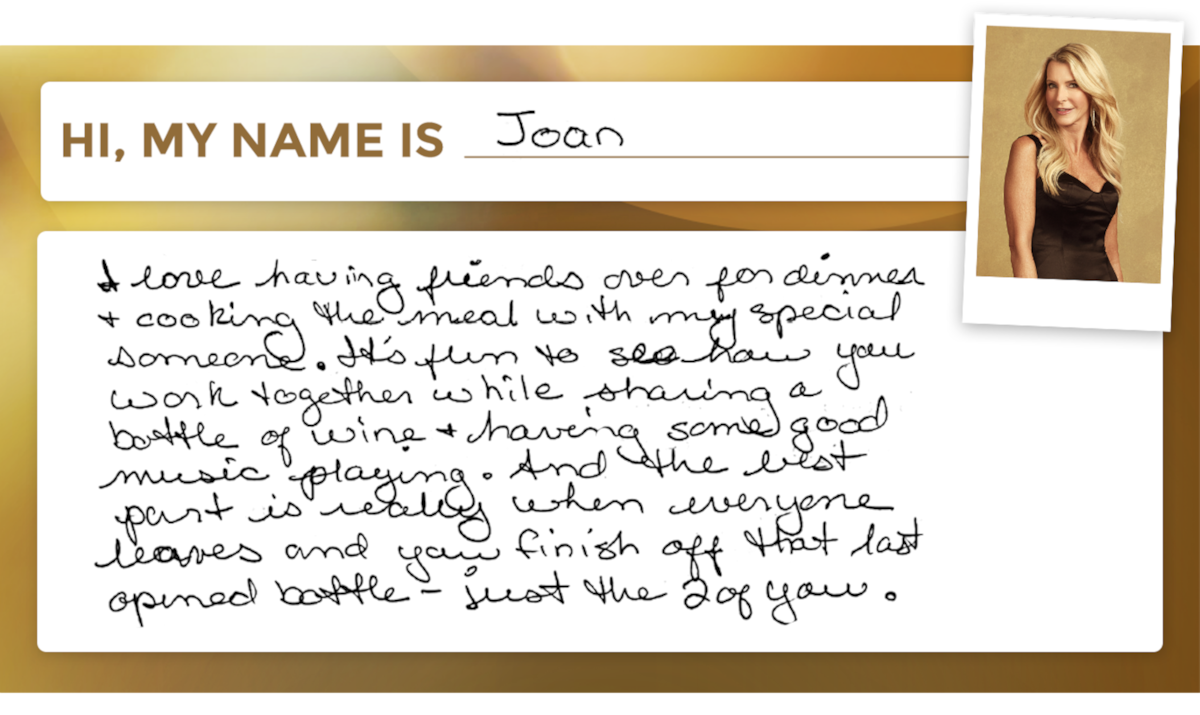 HI, MY NAME IS Joan
I love having friends over for dinner
+ cooking the meal with my special
someone. It's fun to see how you
work together while sharing a
bottle of wine + having some good
music playing. And the best
part is really when everyone
leaves and you finish off that last
opened bottle – just the 2 of you.